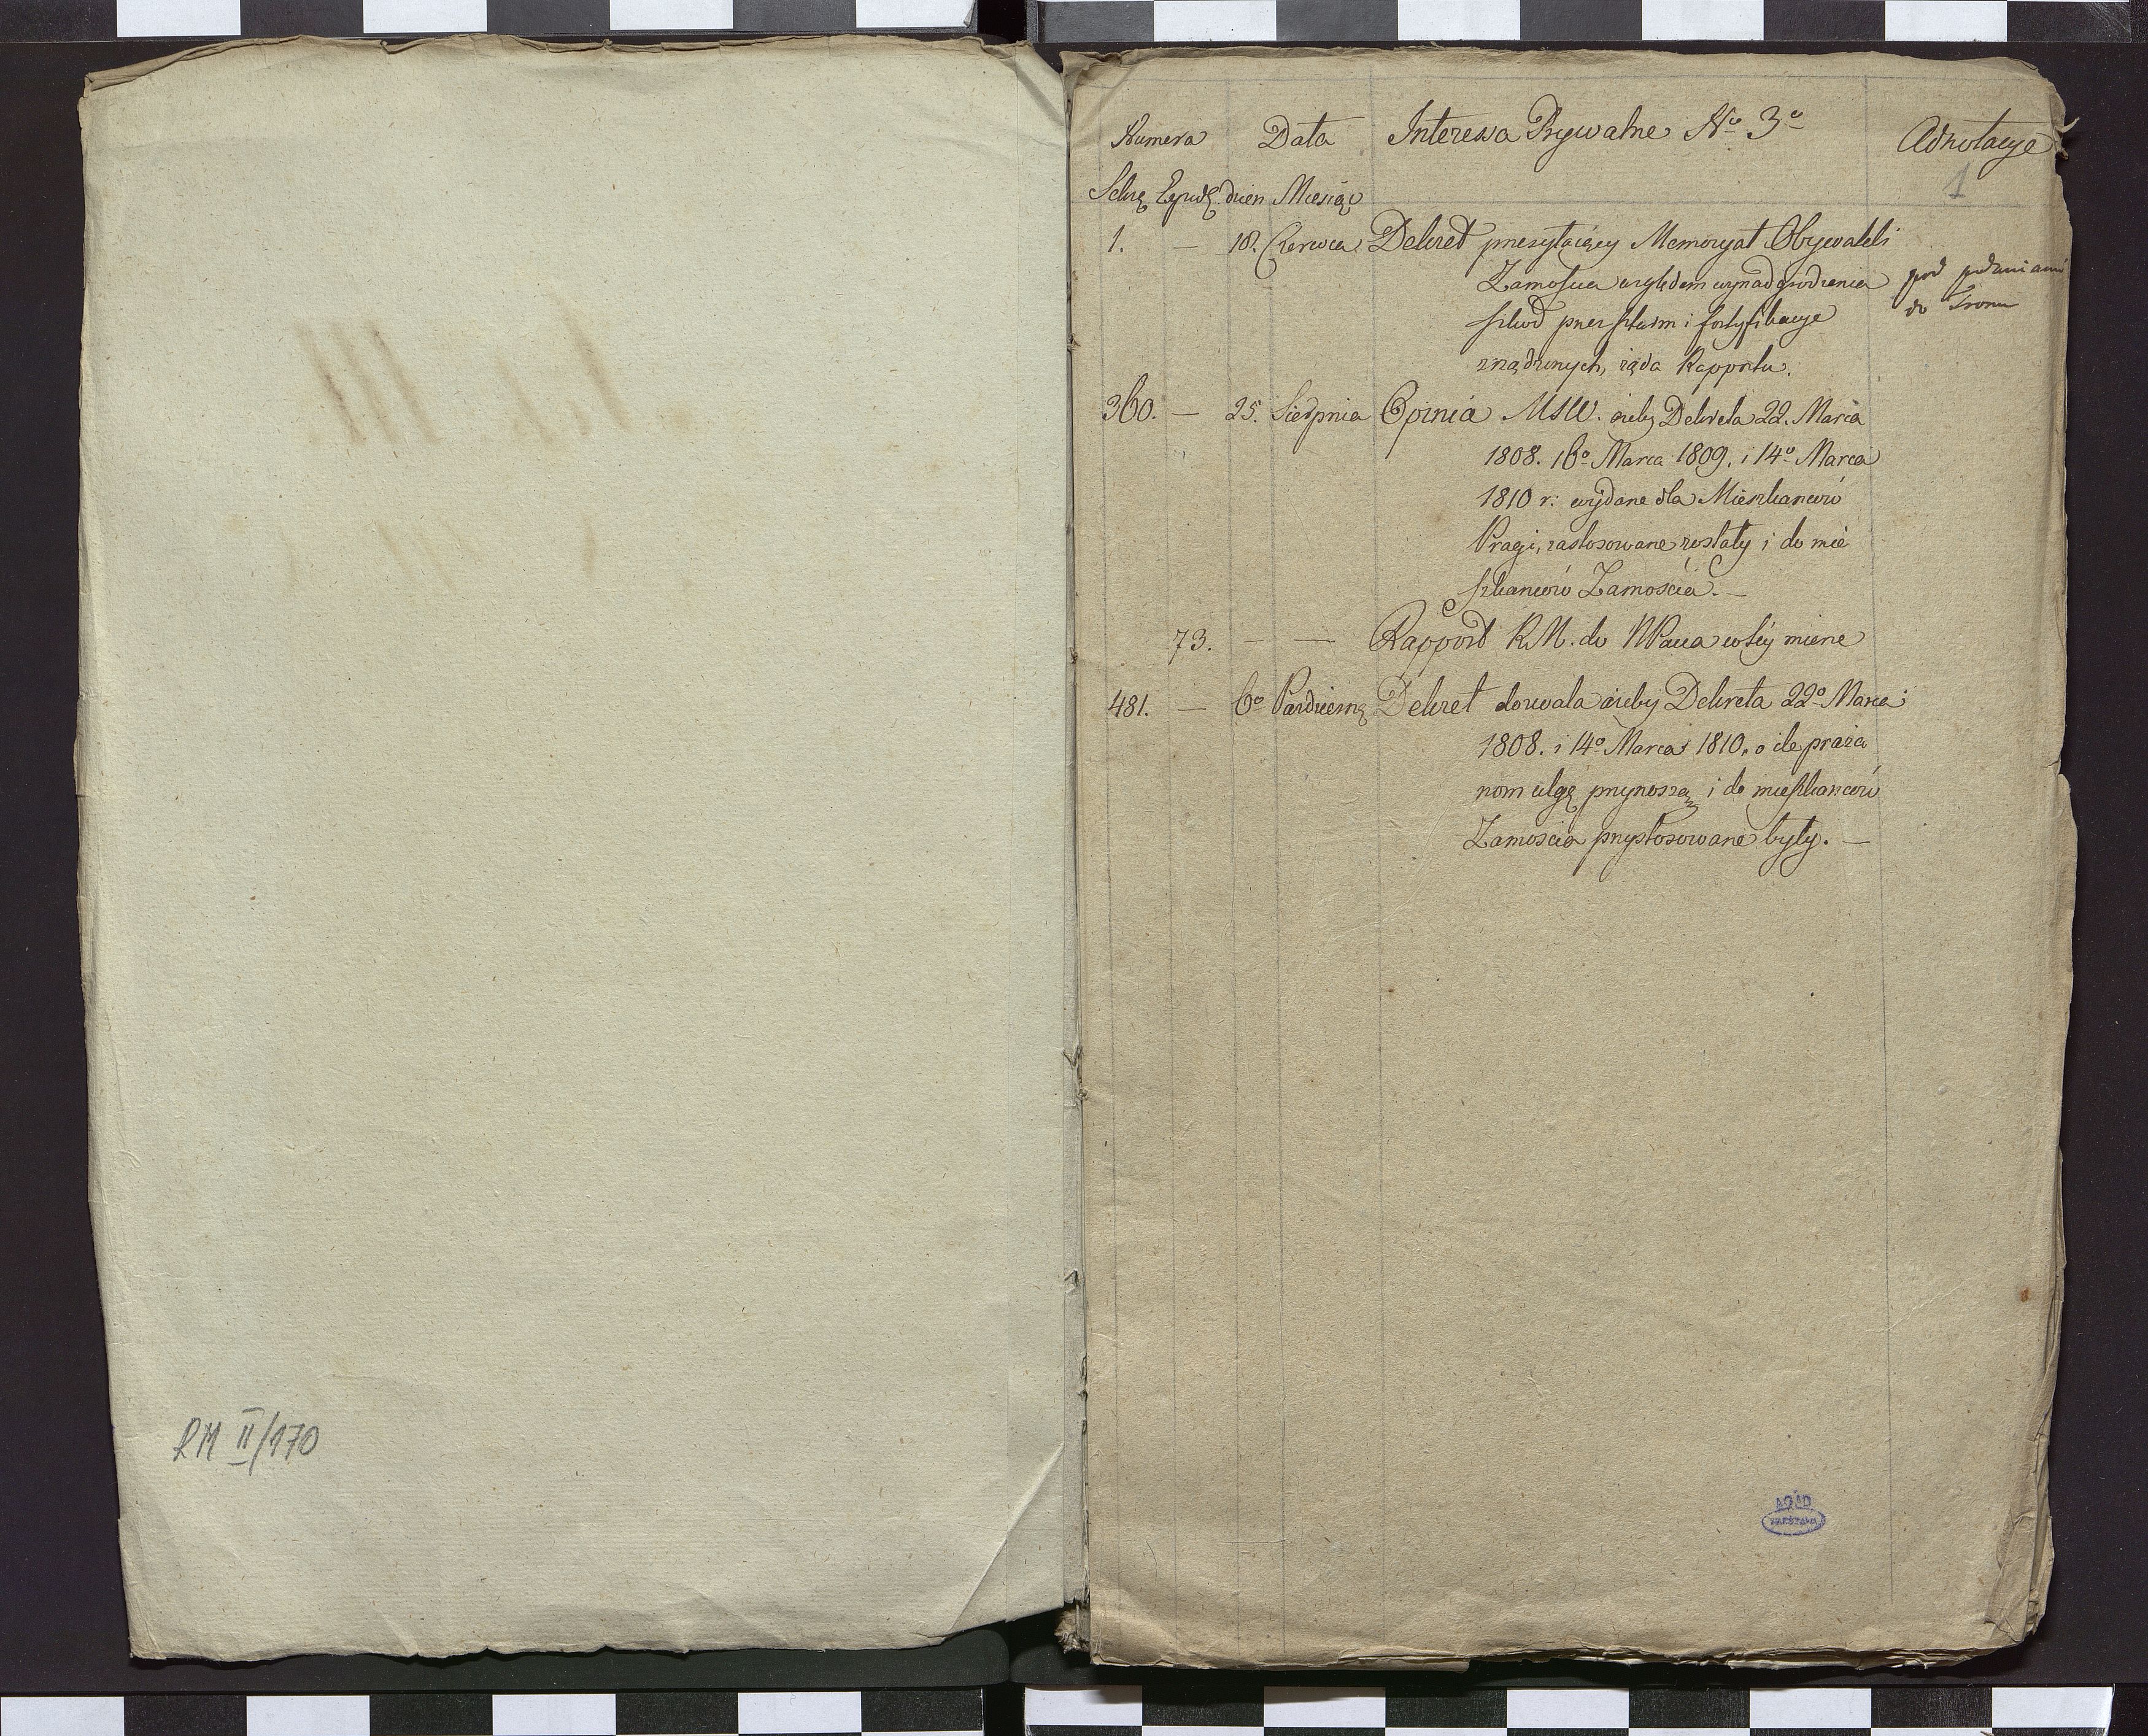 RM II/170
Numera Data Interessa Prywatne No 3o Adnotacye
1
dzien Miesiąc
1. — 18. Czerwca Dekret przesyłaiący Memoryał Obywateli
Zamościa względem wynadgrodzenia
szkod przez szturm i fortyfikacye
zrządzonych, żąda Rapportu.
pod podaniami
do Tronu
360. — 25. Sierpnia Opinia MSW. ażeby Dekreta 22. Marca
1808. 16o Marca 1809. i 14o Marca
1810 r: wydane dla Mieszkancow
Pragi, zastosowane zostały i do mie
szkancow Zamościa. —
73. — — Rapport RM. do NPana w tey mierze
481. — 6o Pazdzierni Dekret dozwala ażeby Dekreta 22o Marca
1808. i 14o Marca 1810. o ile praża
nom ulgę przynoszą, i do mieszkancow
Zamościa przystosowane były. —
AGAD
WARSZAWA